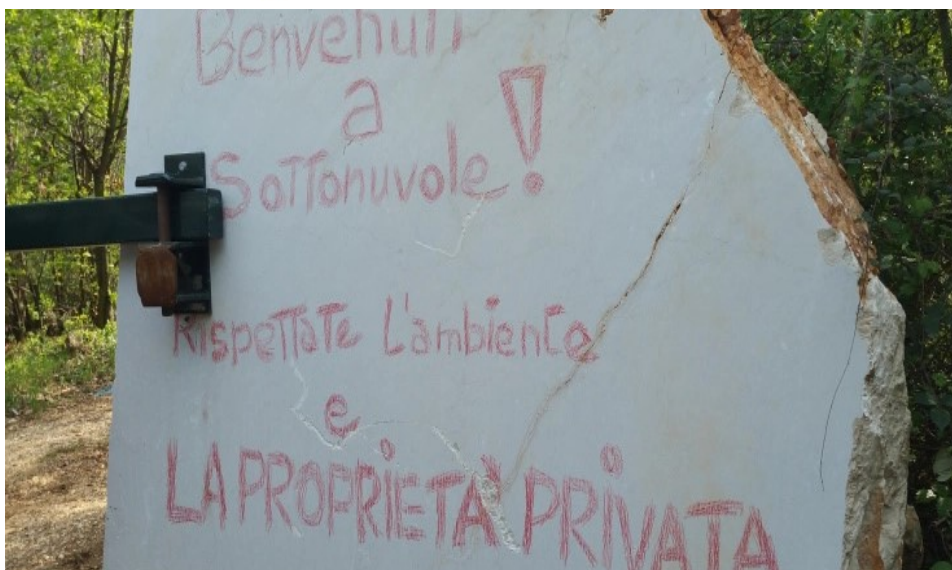 Benvenuti
a
Sottonuvole!
Rispettate L'ambiente
e
LA PROPRIETÀ PRiVATA